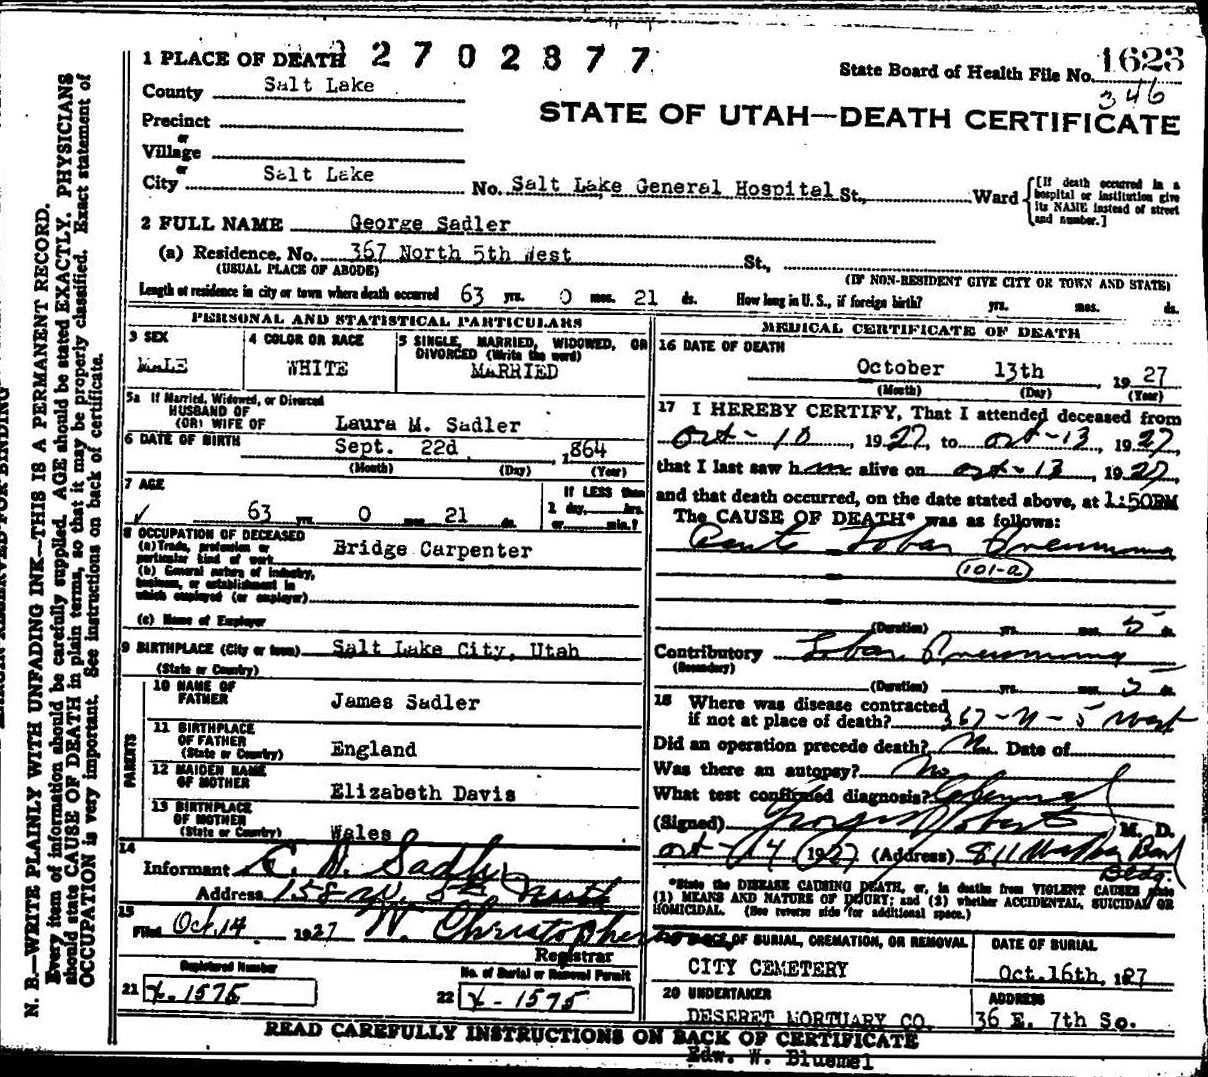 2702877
1 PLACE OF DEATH
State Board of Health File No. 1623
346
County Salt Lake
STATE OF UTAH—DEATH CERTIFICATE
Precinct
or
Village
or
City Salt Lake No. Salt Lake General Hospital St., Ward
[If death occurred in a hospital or institution give its NAME instead of street and number.]
2 FULL NAME George Sadler
(a) Residence. No. 367 North 5th West St.,
(USUAL PLACE OF ABODE) (IF NON-RESIDENT GIVE CITY OR TOWN AND STATE)
Length of residence in city or town where death occurred 63 yrs. 0 mos. 21 ds. How long in U. S., if foreign birth? yrs. mos. ds.
PERSONAL AND STATISTICAL PARTICULARS
3 SEX
MALE
4 COLOR OR RACE
WHITE
5 SINGLE, MARRIED, WIDOWED, OR
DIVORCED (Write the word)
MARRIED
5a If Married, Widowed, or Divorced
HUSBAND OF
(OR) WIFE OF Laura M. Sadler
6 DATE OF BIRTH Sept. 22d 1864
(Month) (Day) (Year)
7 AGE
63 yrs. 0 mos. 21 ds.
If LESS than
1 day, hrs.
or min.?
8 OCCUPATION OF DECEASED
(a) Trade, profession or
particular kind of work Bridge Carpenter
(b) General nature of industry,
business, or establishment in
which employed (or employer)
(c) Name of Employer
9 BIRTHPLACE (City or town) Salt Lake City, Utah
(State or Country)
PARENTS
10 NAME OF
FATHER James Sadler
11 BIRTHPLACE
OF FATHER
(State or Country) England
12 MAIDEN NAME
OF MOTHER Elizabeth Davis
13 BIRTHPLACE
OF MOTHER
(State or Country) Wales
14
Informant Sadler
Address 158 W. 5th North
15
Filed Oct. 14 1927 W. Christopher
Registrar
Registered Number
21 x-1575
No. of Burial or Removal Permit
22 x-1575
MEDICAL CERTIFICATE OF DEATH
16 DATE OF DEATH
October 13th, 1927
(Month) (Day) (Year)
17 I HEREBY CERTIFY, That I attended deceased from
Oct-10, 1927, to Oct-13, 1927,
that I last saw him alive on Oct-13, 1927,
and that death occurred, on the date stated above, at 1:50PM
The CAUSE OF DEATH* was as follows:
Acute Lobar Pneumonia
101-a
(Duration) yrs. mos. 5 ds.
Contributory Lobar Pneumonia
(Secondary)
(Duration) yrs. mos. 5 ds.
18 Where was disease contracted
if not at place of death? 367-N-5 West
Did an operation precede death? No Date of
Was there an autopsy? No
What test confirmed diagnosis?
(Signed) George Roberts, M. D.
Oct-14, 1927 (Address) 811 Bldg.
*State the DISEASE CAUSING DEATH, or, in deaths from VIOLENT CAUSES state
(1) MEANS AND NATURE OF INJURY; and (2) whether ACCIDENTAL, SUICIDAL OR
HOMICIDAL. (See reverse side for additional space.)
PLACE OF BURIAL, CREMATION, OR REMOVAL
CITY CEMETERY
DATE OF BURIAL
Oct.16th, 1927
20 UNDERTAKER
DESERET MORTUARY CO.
ADDRESS
36 E. 7th So.
READ CAREFULLY INSTRUCTIONS ON BACK OF CERTIFICATE
Edw. W. Bluemel
MARGIN RESERVED FOR BINDING
N. B.—WRITE PLAINLY WITH UNFADING INK—THIS IS A PERMANENT RECORD.
Every item of information should be carefully supplied. AGE should be stated EXACTLY. PHYSICIANS
should state CAUSE OF DEATH in plain terms, so that it may be properly classified. Exact statement of
OCCUPATION is very important. See instructions on back of certificate.